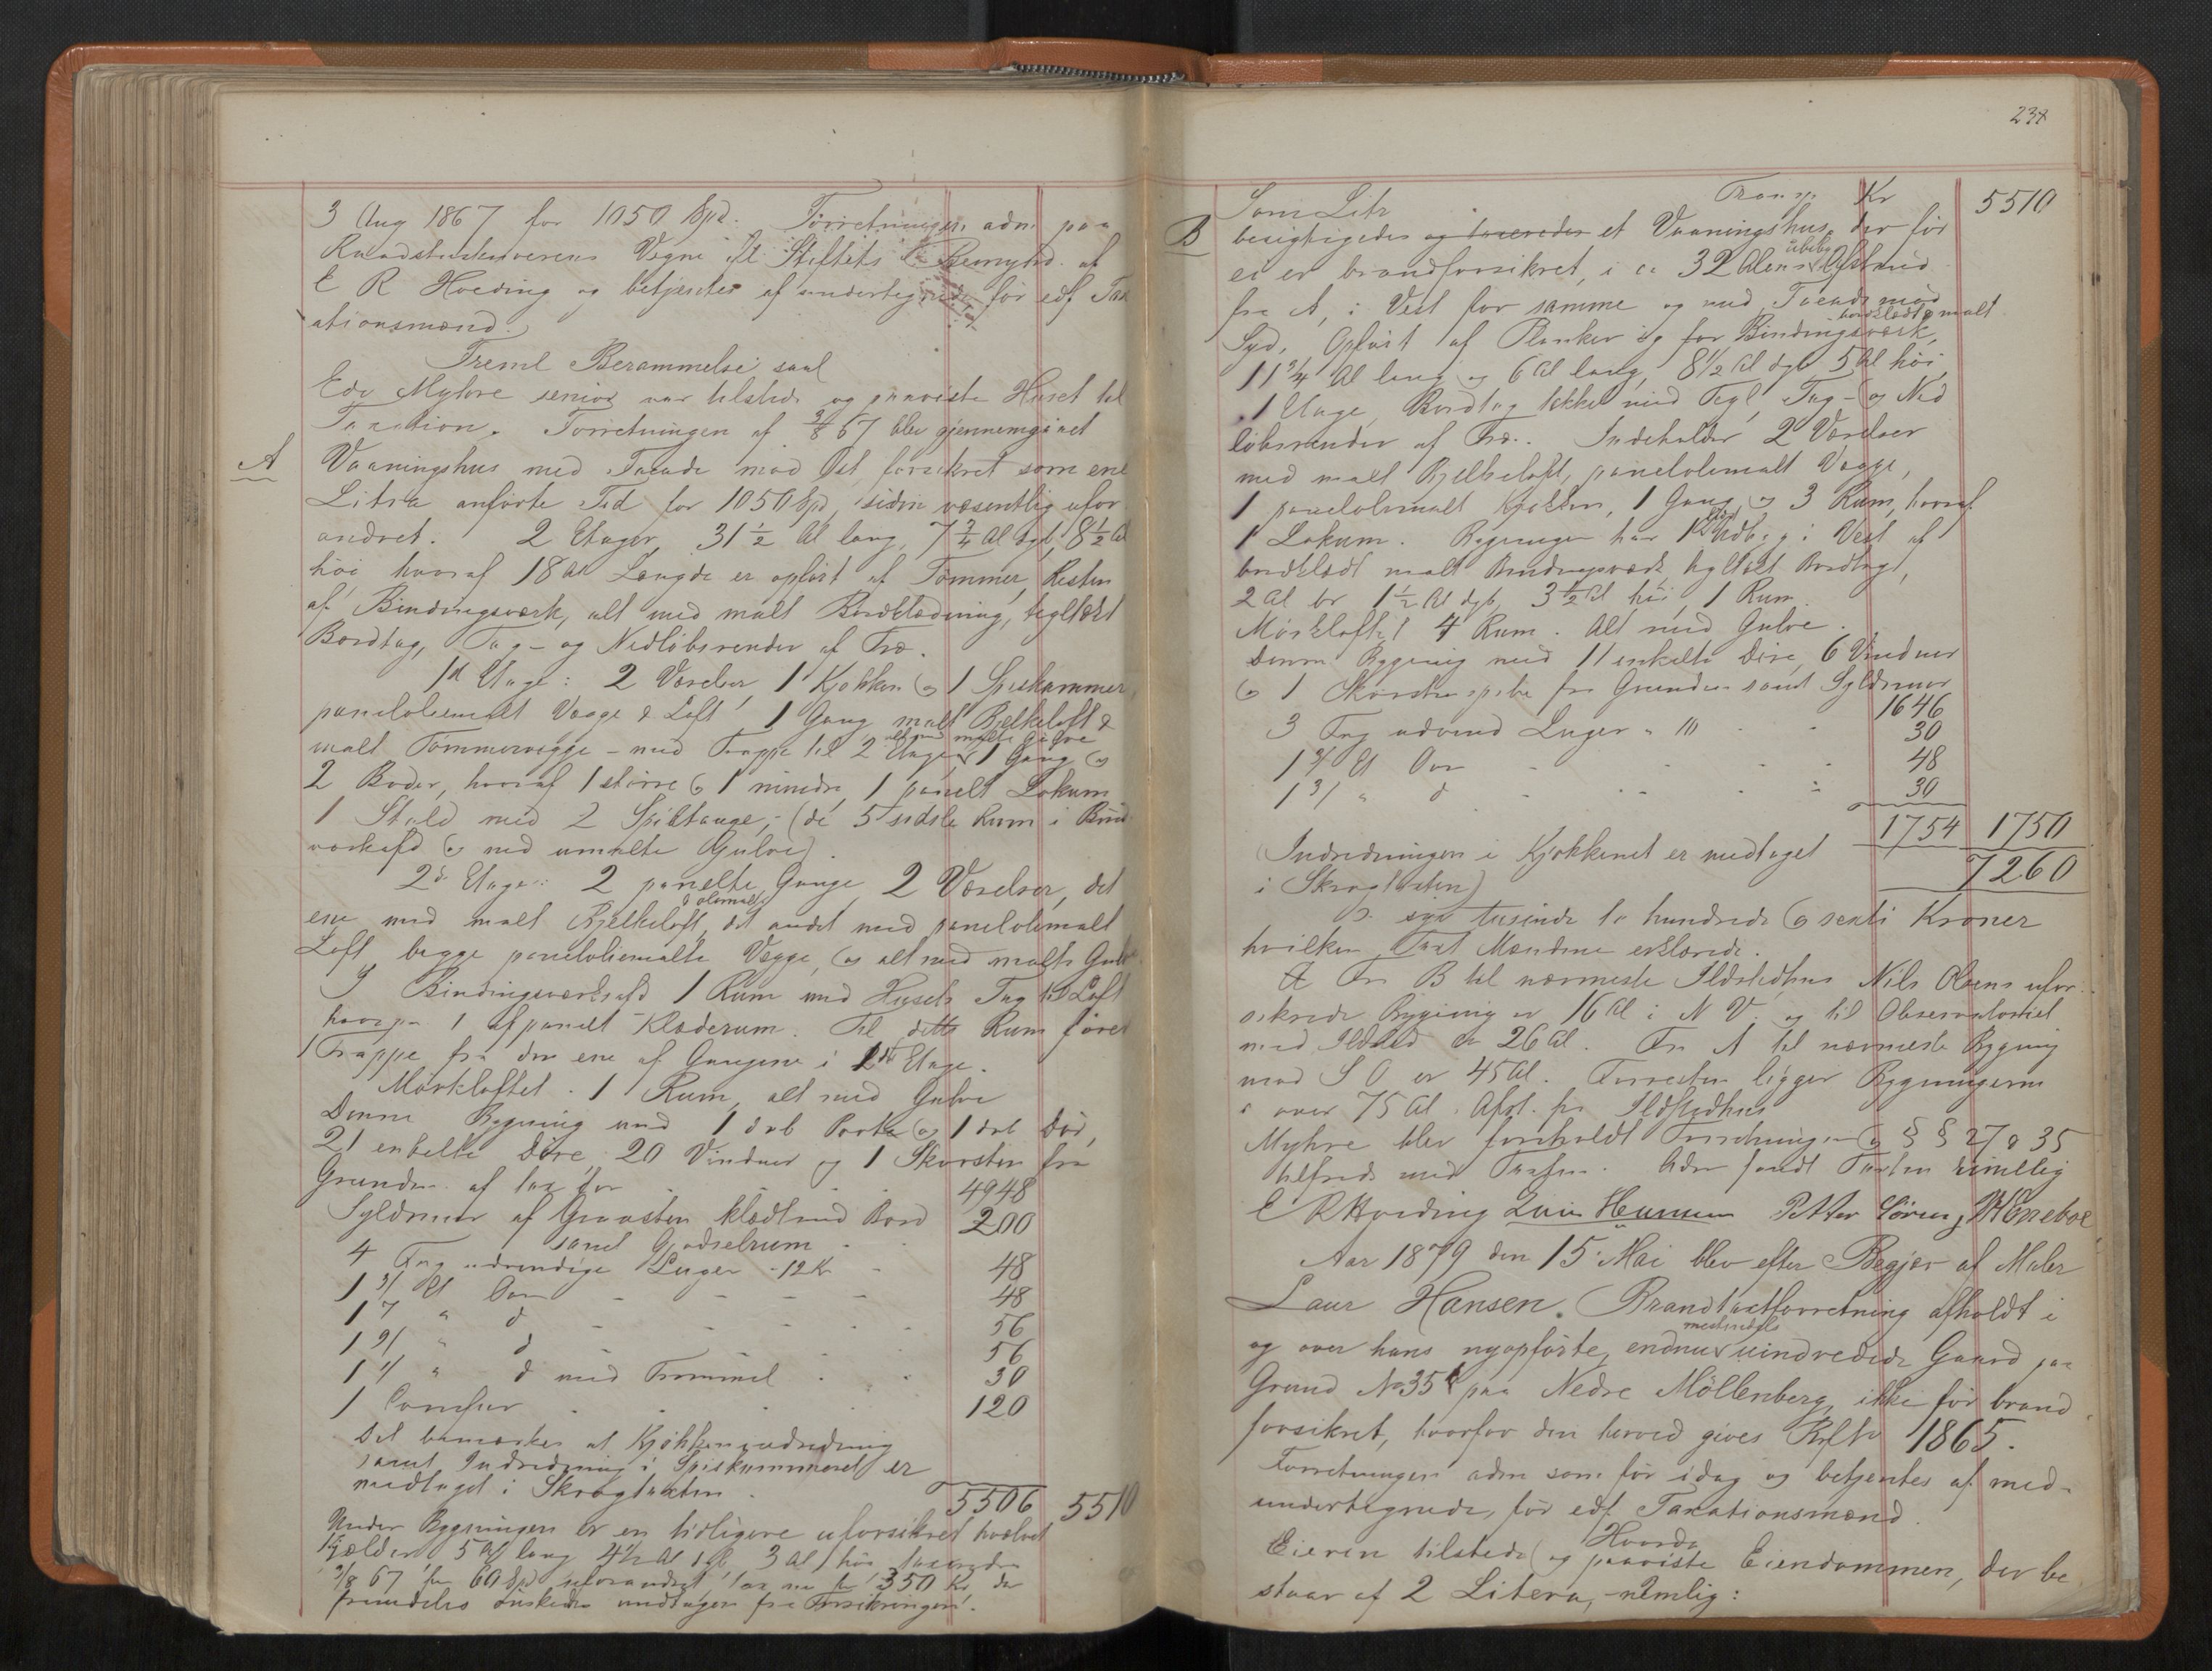 3 Aug 1867 for 1050 Spd. Forretningen adm paa
Raadstueskriverens Vegne ifl Stiftets Bemynd. af
E R Hoeding og betjentes af undertegnede før edf Tax
ationsmænd.
Freml Berammelse saal
Edv Myhre senior var tilstede og paaviste Huset til
Taxation. Forretningen af 3/8 67 blev gjennemgaaet
A Vaaningshus med Facade mod Øst, forsikret som ene
Litra anførte Tid for 1050 Spd, siden væsentlig ufor
andret. 2 Etager, 31 1/2 Al lang, 7 3/4 Al dyb, 8 1/2 Al
høi hvoraf 18 Al Længde er opført af Tømmer, Resten
af Bindingsværk, alt med malt Bordklædning, tegltækt
Bordtag, Tag- og Nedløbsrender af Træ.
1st Etage: 2 Værelser 1 Kjøkken og 1 Spiskammer,
paneloliemalt Vægge & Loft, 1 Gang malt Bjelkeloft &
malt Tømmervægge - med Trappe til 2 Etage, alt med malte Gulve 1 Gang og
2 Boder, hvoraf 1 større og 1 mindre, 1 panelt Lokum
1 Stald med 2 Spiltauge, - (de 5 sidste Rum i Bind
værksafd og med umalte Gulve).
2d Etage: 2 panelte & oliemalte Gange, 2 Værelser, det
ene med malt Bjelkeloft, det andet med paneloliemalt
Loft, begge paneloliemalte Vægge, og alt med malte Gulve
I Bindingsværksafd 1 Rum med Husets Tag til Loft
hvorpaa 1 afpanelt Klæderum. Til dette Rum fører
1 Trappe fra den ene af Gangene i 1st Etage.
Mørkloftet. 1 Rum, alt med Gulve
Denne Bygning med 1 dob Porte og 1 dob Dør,
21 enkelte Døre, 20 Vinduer og 1 Skorsten fra
Grunden af tax for . . . 4948
Syldmur af Graasten klædt med Bord 200
samt Gjødselrum
4 Fag udvendige Luger - 12 Kr - 48
1 3/ Et Ovn - - - - 48
1 7 " d - - - - 56
1 2/ " d - - - - 56
1 1/ " d med Trommel . . 30
1 Comfur . . . 120
Det bemærkes at Kjøkkenindredning
samt Indredning i Spiskammeret er
medtaget i Skrogtaxten .
5506 5510
Under Bygningen er en tidligere uforsikret hvælvet
Kjælder 5 Al lang 4 1/2 Al dyb, 3 Al høi taxeredes
3/8 67 for 60 Spd uforandret, tax nu for 350 Kr, der
fremdeles ønskedes undtagen fra Forsikringen.
238
Transp. Kr 5510
Som Litr
B besigtigedes og taxeredes et Vaaningshus, der før
ei er brandforsikret, i ca 32 Alens ubebyg Afstand
fra A, i Vest for samme og med Facade mod
Syd, Opført af Planker og for Bindingsværk, bordklædt & malt
11 3/4 Al lang og 6 Al lang, 8 1/2 Al dyb 5 Al høi,
1 Etage, Bordtag tækket med Tegl, Tag- og Ned
løbsrender af Træ. Indeholder 2 Værelser
med malt Bjelkeloft, paneloliemalt Vægge,
1 paneloliemalt Kjøkken, 1 Gang og 3 Rum, hvoraf
1 Lokum. Bygningen har 1 Udbyg i Vest af
bordklædt malt Bindingsværk tegltækt Bordtag,
2 Al br 1 1/2 Al dyb, 3 1/2 Al høi, 1 Rum
Mørkloftet 4 Rum. Alt med Gulve.
Denne Bygning med 11 enkelte Døre, 6 Vinduer
og 1 Skorstenspibe fra Grunden samt Syldmur
1646
3 Fag udvend Luger a 10 . . 30
1 3/ Et Ovn - - - - 48
1 3/ " d - - - - 30
1754 1750
(Indredningen i Kjøkkenet er medtaget
i Skrogtaxten) 7260
syv tusinde to hundrede og sexti Kroner
hvilken Taxt Mændene erklærede.
Fra B til nærmeste Ildstedhus Nils Olsens ufor-
sikrede Bygning er 16 Al i N V. og til Observatoriet
med Ildsted ca 26 Al. Fra A til nærmeste Bygning
mod S O er 45 Al. Forresten ligger Bygningerne
i over 75 Al. Afst. fra Ildstedhus
Myhre blev foreholdt Forretningen og §§ 27 & 35
tilfreds med Taxten. Adm fandt Taxten rimelig
E R Hoeding Petter Sørensen
Aar 1879 den 15 Mai blev efter Begjær af Maler
Laur Hansen. Brandtaxtforretning afholdt i
og over hans nyopførte, endnu mestendels uindredede Gaard paa
Grund No 35 paa Nedre Möllenberg, ikke før brand
forsikret, hvorfor den herved gives Rflb 1865.
Forretningen adm som før idag og betjentes af med-
undertegnede, før edf Taxationsmænd.
Eieren tilstede og paaviste Eiendommen, der be
staar af 2 Litera, - nemlig: